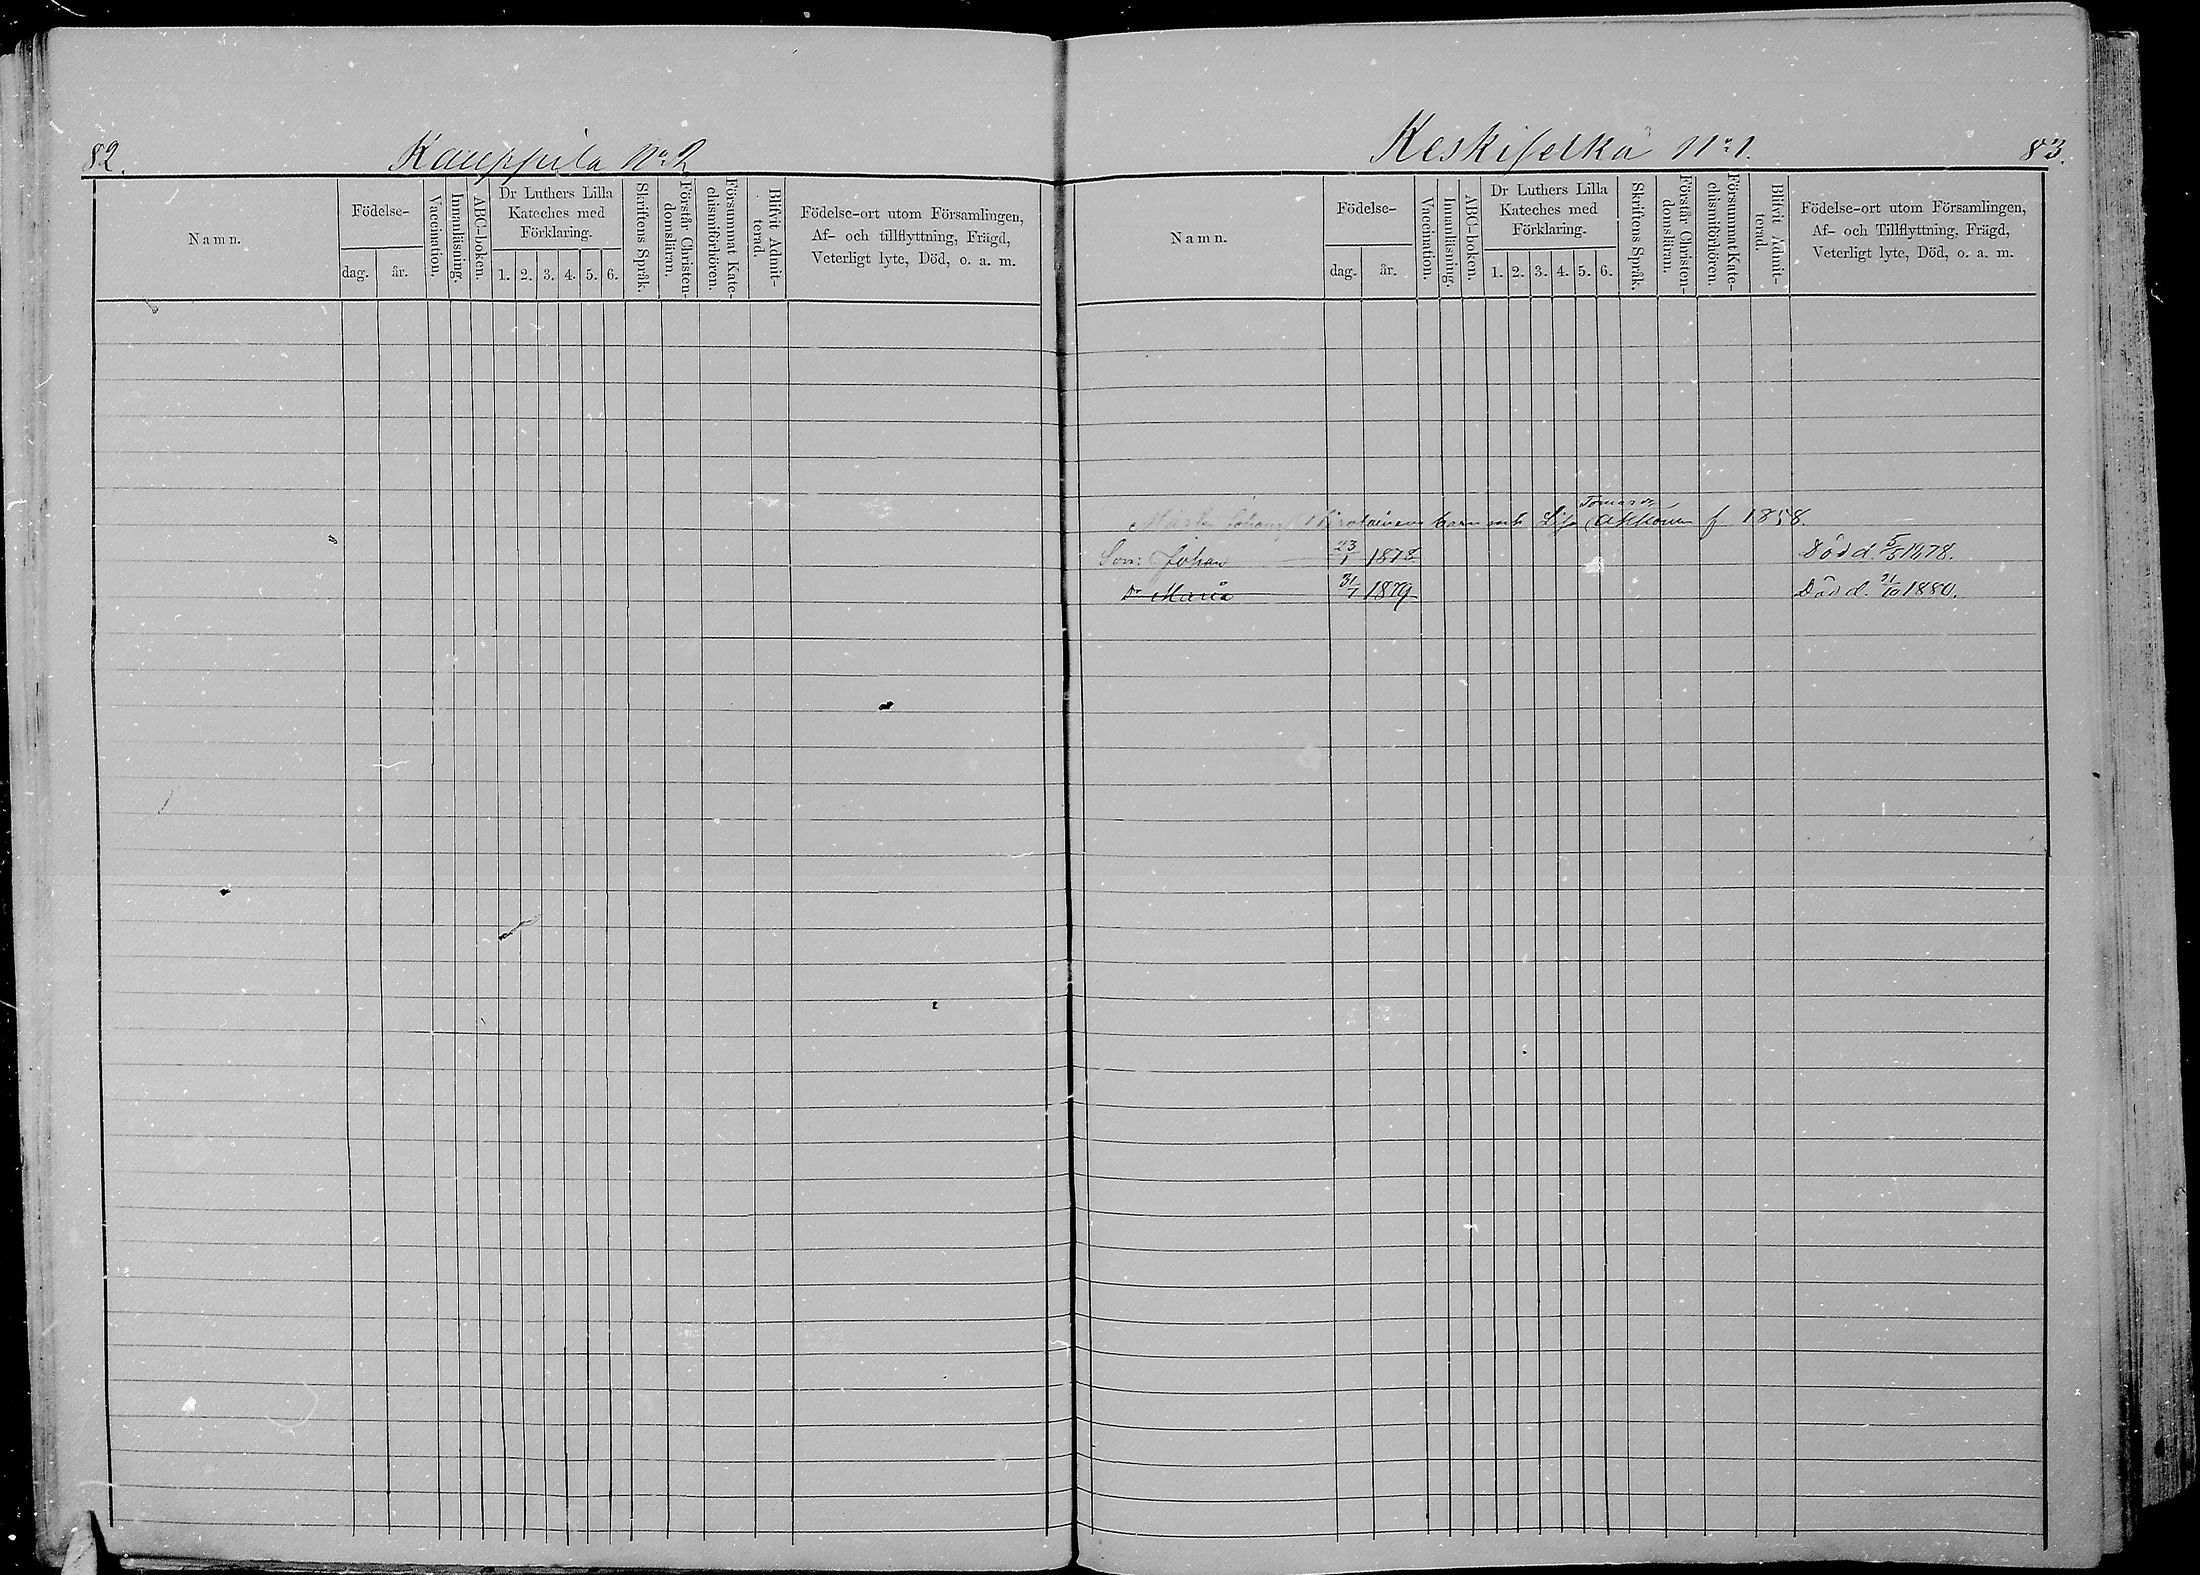 82.
Kauppila No 2
Namn.
Födelse-
dag.
år.
Vaccination.
Innanläsning.
ABC-boken.
Dr Luthers Lilla
Kateches med
Förklaring.
1. 2. 3. 4. 5. 6.
Skriftens Språk.
Förstår Christen-
domsläran.
Försummat Kate-
chismiförhören.
Blifvit Admit-
terad.
Födelse-ort utom Församlingen,
Af- och tillflyttning, Frägd,
Veterligt lyte, Död, o. a. m.
Keskiselkä No 1.
83.
Namn.
Födelse-
dag.
år.
Vaccination.
Innanläsning.
ABC-boken.
Dr Luthers Lilla
Kateches med
Förklaring.
1. 2. 3. 4. 5. 6.
Skriftens Språk.
Förstår Christen-
domsläran.
Försummat Kate-
chismiförhören.
Blifvit Admit-
terad.
Födelse-ort utom Församlingen,
Af- och Tillflyttning, Frägd,
Veterligt lyte, Död, o. a. m.
barn Lisa f 1858.
Son: Johan 23/1 1878 Död d. 5/5 1878.
Dr Maria 31/7 1879 Död d. 21/10 1880.